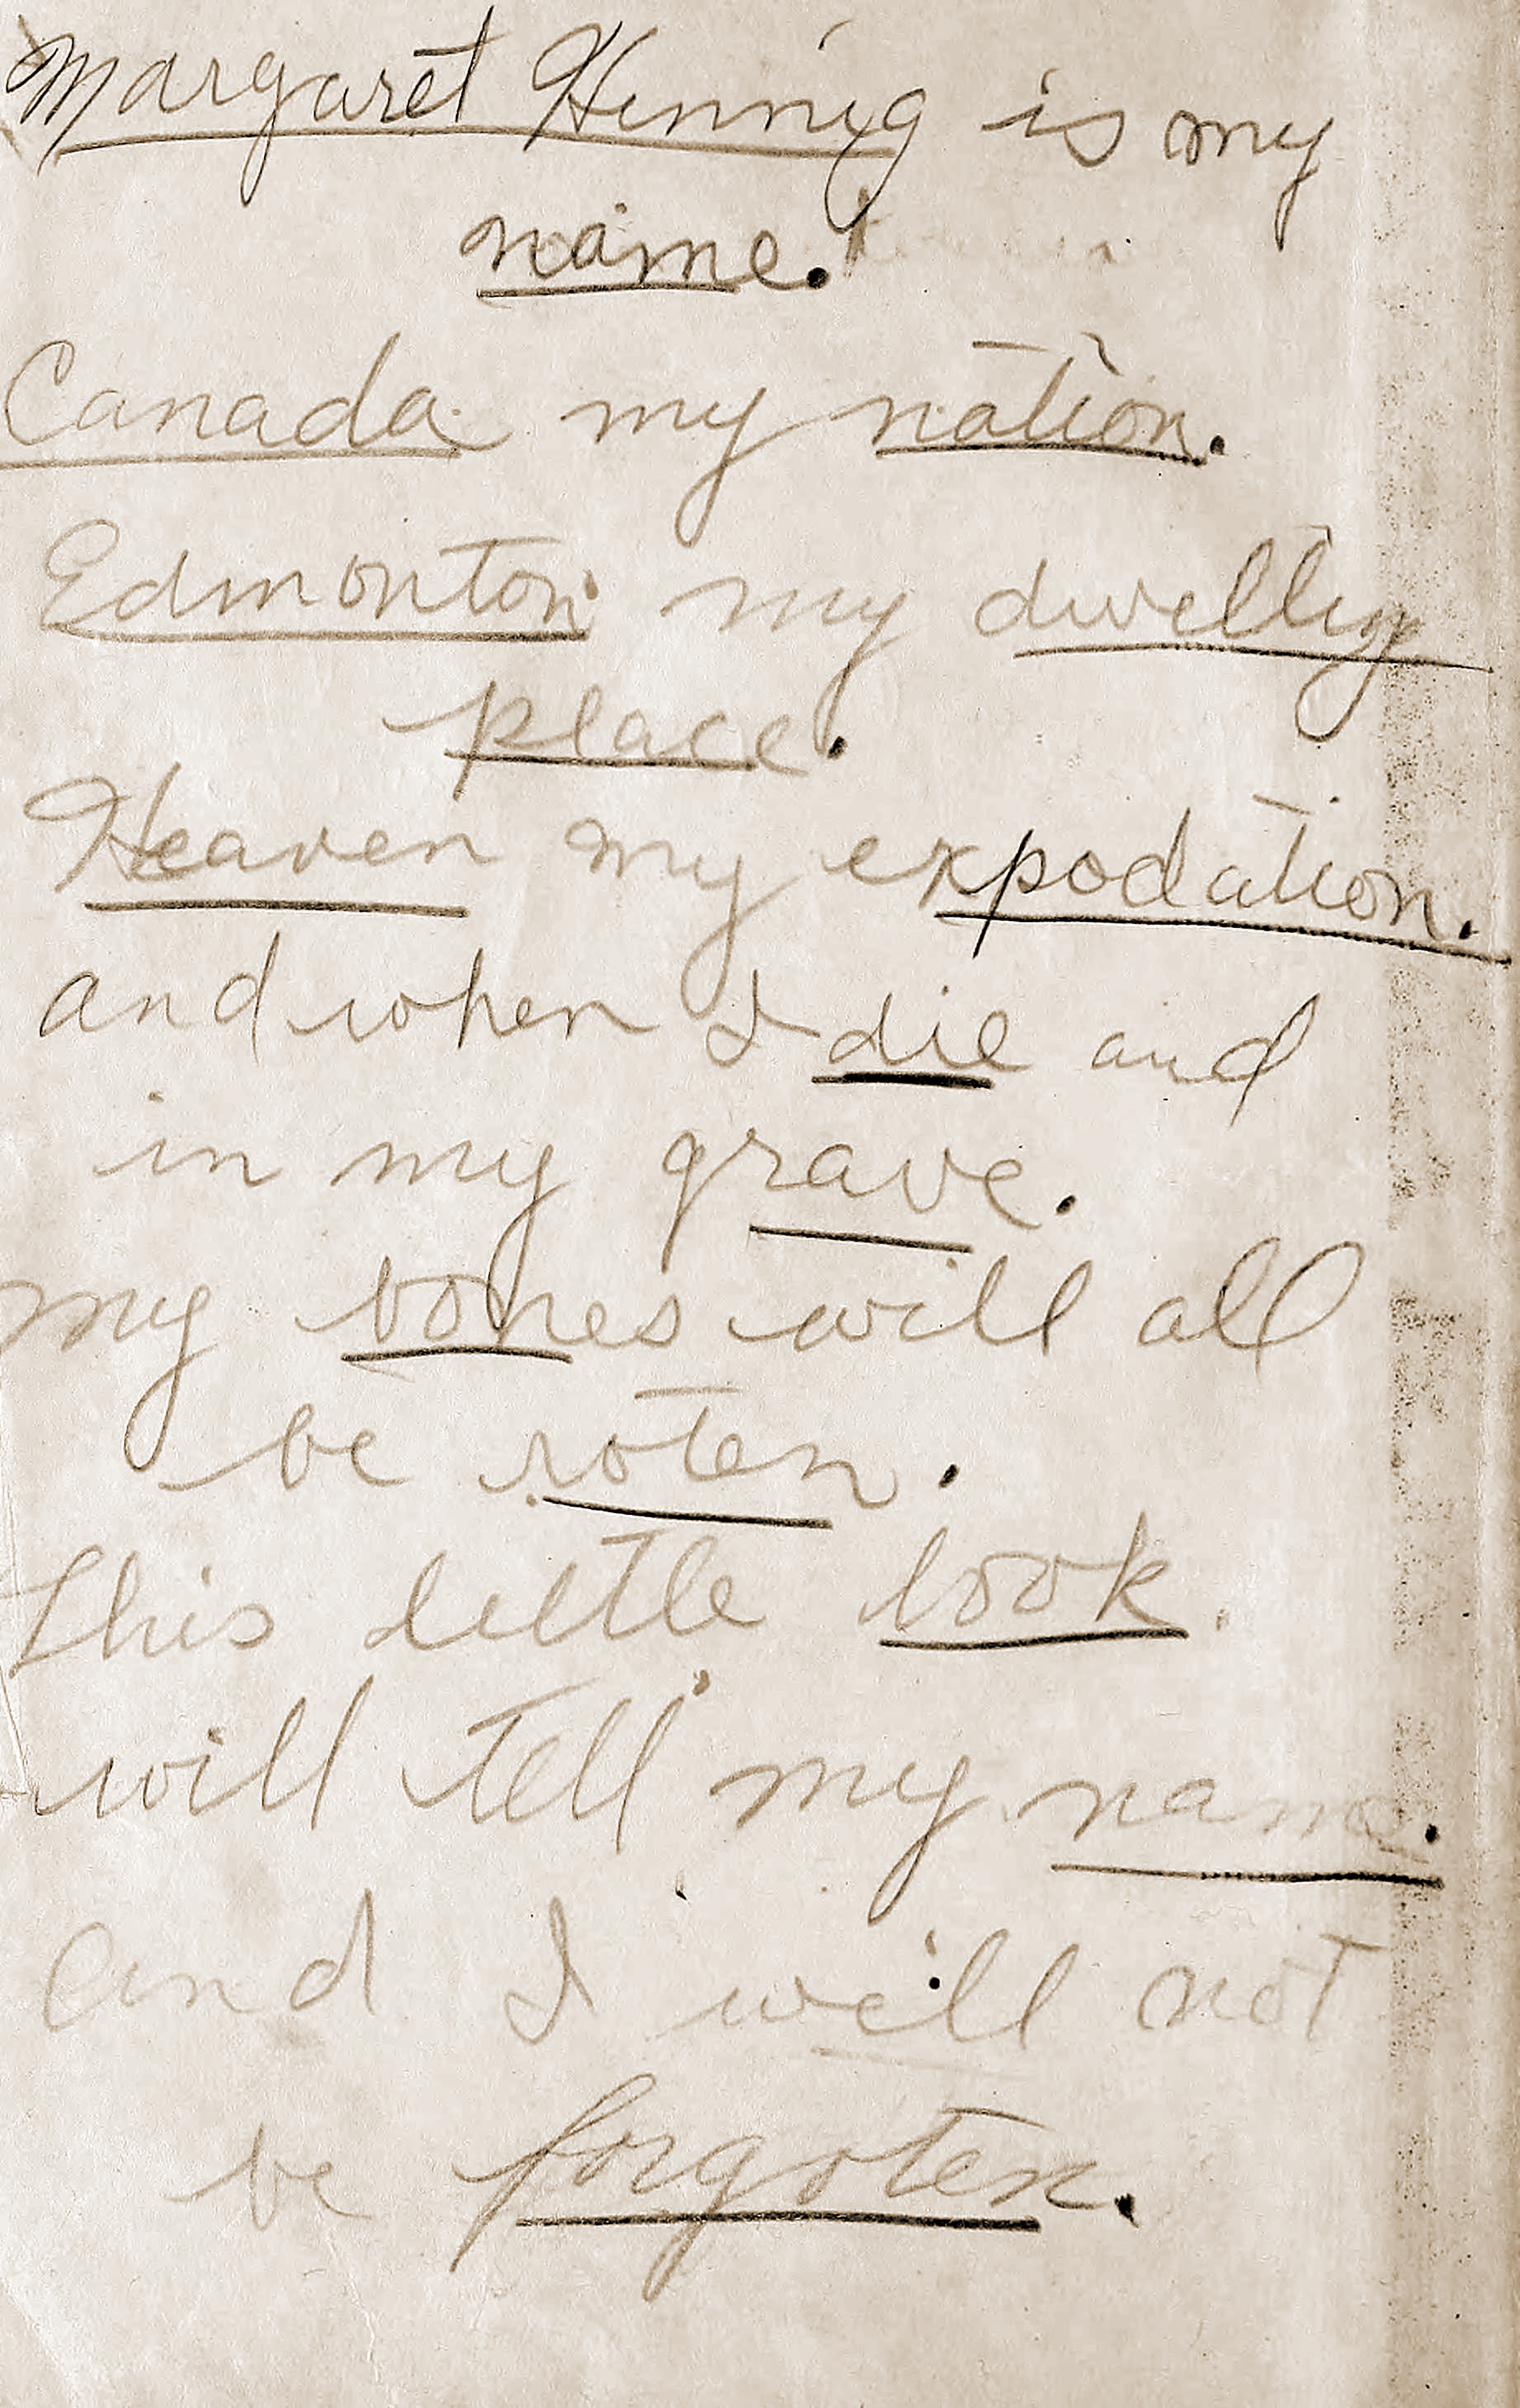 Margaret Hennig is my
name.
Canada my nation.
Edmonton my dwelling
place.
Heaven my expodation.
and when I die and
in my grave.
my bones will all
be roten.
This little book
will tell my name.
and I will not
be forgoten.